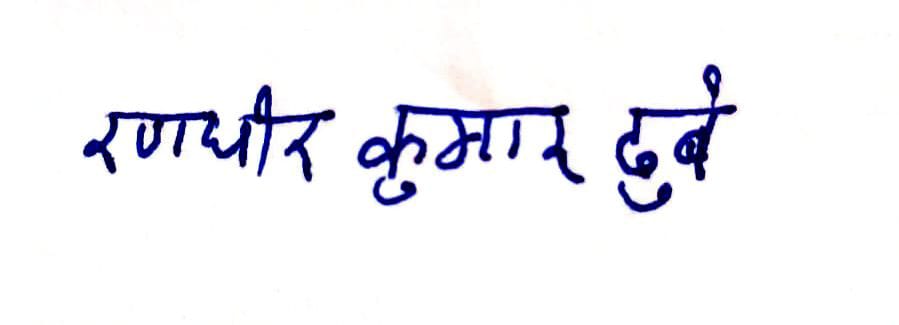 रणधीर कुमार दुबे